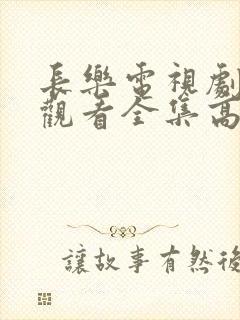 長樂電視劇
觀看全集高
讓故事有然後